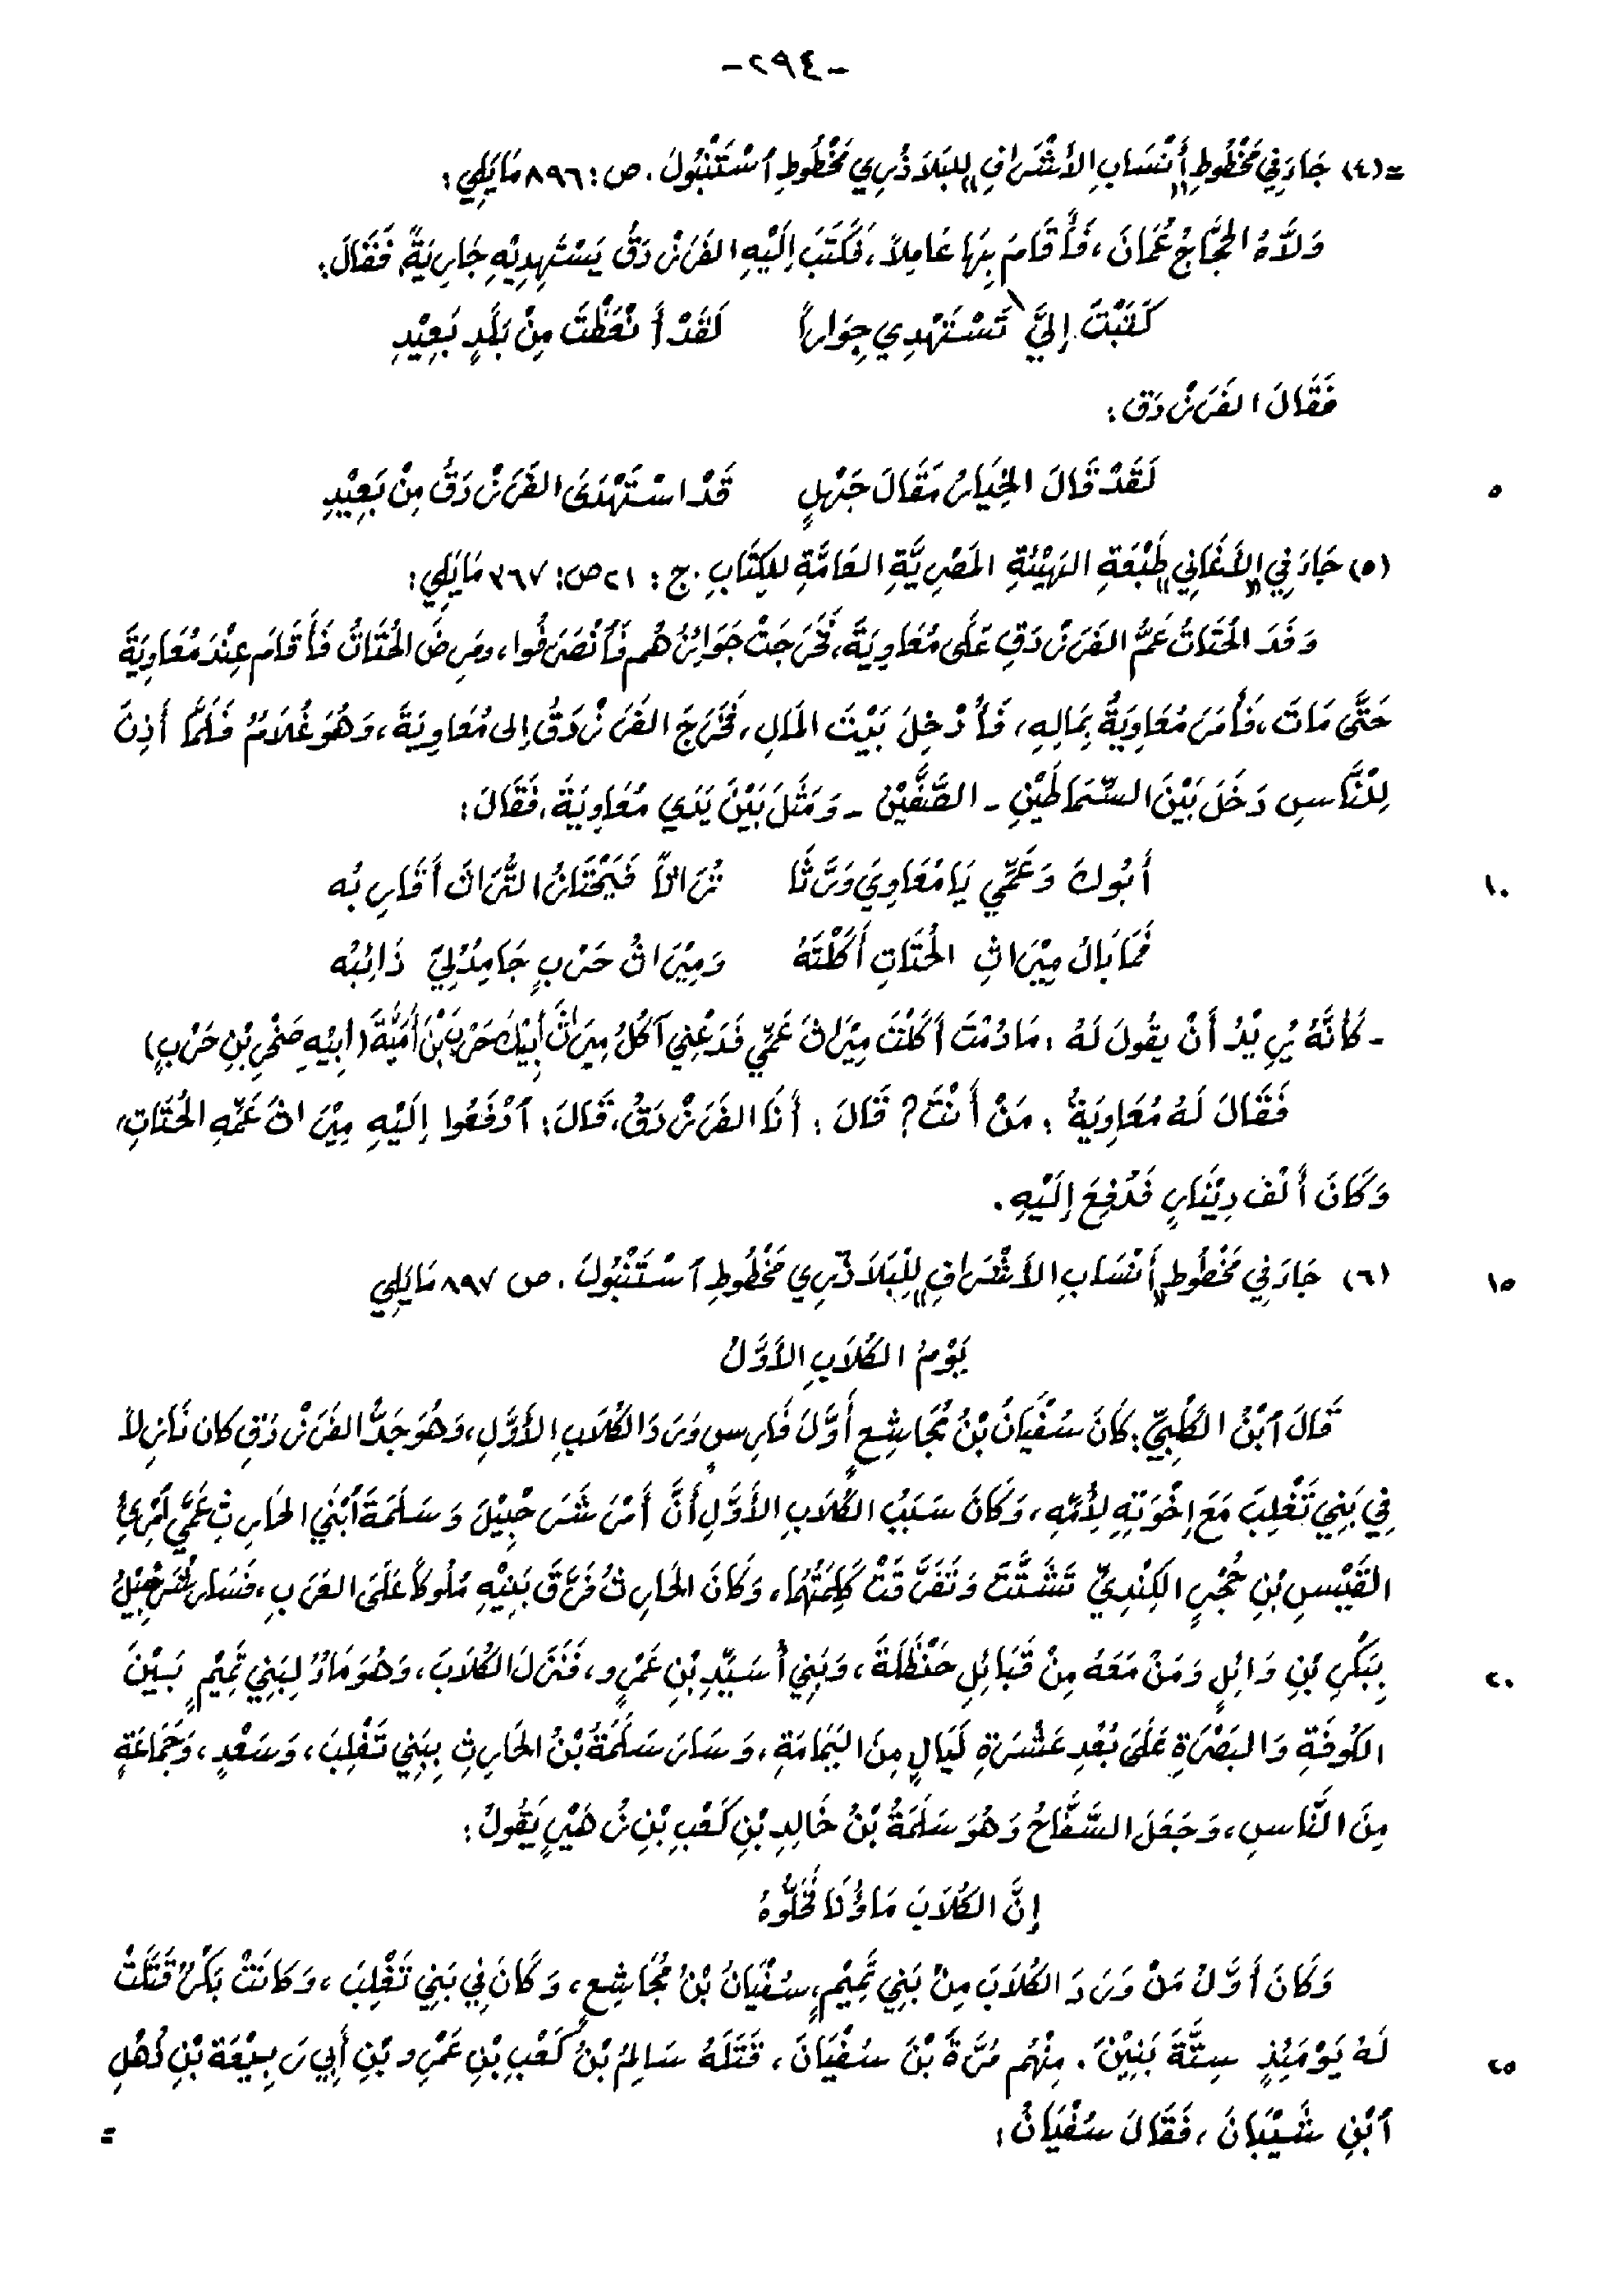 -٢٩٤-
=(٤) جَاءَ فِي مَخْطُوطِ "أَنْسَابِ الأَشْرَافِ" لِلبَلَاذُرِي مَخْطُوطِ ٱسْتَنْبُولَ. ص: ٨٩٦ مَايَلِي:
وَلَّاهُ الحَجَّاجُ عُمَانَ، فَأَقَامَ بِهَا عَامِلاً، فَكَتَبَ إِلَيْهِ الفَرَزْدَقُ يَسْتَهْدِيْهِ جَارِيَةً، فَقَالَ:
كَتَبْتَ إِلَيَّ تَسْتَهْدِي جِوَاراً لَقَدْ أَنْعَظْتَ مِنْ بَلَدٍ بَعِيْدِ
فَقَالَ الفَرَزْدَق:
٥ لَقَدْ قَالَ الخِيَارُ مَقَالَ جَهْلٍ قَدْ اسْتَهْدَىَ الفَرَزْدَقُ مِنْ بَعِيْدِ
(٥) جَاءَ فِي "الأَغَانِي" طَبْعَةِ الهَيْئَةِ المَصْرِيَّةِ العَامَّةِ لِلكِتَابِ. ج: ٢١ ص: ٣٦٧ مَايَلِي:
وَفَدَ الحُتَاتُ عَمُّ الفَرَزْدَقِ عَلَى مُعَاوِيَةَ، فَخَرَجَتْ جَوَائِزُهُم فَٱنْصَرَفُوا، ومَرِضَ الحُتَاتُ فَأَقَامَ عِنْدَ مُعَاوِيَةَ
حَتَّى مَاتَ، فَأَمَرَ مُعَاوِيَةُ بِمَالِهِ، فَأُدْخِلَ بَيْتَ المَالِ، فَخَرَجَ الفَرَزْدَقُ إِلى مُعَاوِيَةَ، وَهُوَ غُلَامٌ فَلَمَّا أَذِنَ
لِلْنَّاسِ دَخَلَ بَيْنَ السِّمَاطَيْنِ - الصَّفَّيْنِ - وَمَثَلَ بَيْنَ يَدَي مُعَاوِيَةَ، فَقَالَ:
١٠ أَبُوكَ وَعَمِّي يَا مُعَاوِيَ وَرَّثَا تُرَاثاً فَيَحْتَازُ التُّرَاثَ أَقَارِبُه
فَمَا بَالُ مِيْرَاثِ الحُتَاتِ أَكَلْتَهُ وَمِيْرَاثُ حَرْبٍ جَامِدٌ لِيَ ذَائِبُه
- كَأَنَّهُ يُرِيْدُ أَنْ يَقُولَ لَهُ: مَا دُمْتَ أَكَلْتَ مِيْرَاثَ عَمِّي فَدَعْنِي آكُلُ مِيرَاثَ أَبِيْكَ حَرْبَ بْنَ أُمَيَّةَ (أَبِيْهِ صَخْرِ بْنِ حَرْبٍ)
فَقَالَ لَهُ مُعَاوِيَةُ: مَنْ أَنْتَ؟ قَالَ: أَنَا الفَرَزْدَقُ، قَالَ: ٱدْفَعُوا إِلَيْهِ مِيْرَاثَ عَمِّهِ الحُتَاتِ،
وَكَانَ أَلْفَ دِيْنَارٍ فَدُفِعَ إِلَيْهِ.
١٥ (٦) جَاءَ فِي مَخْطُوطِ "أَنْسَابِ الأَشْرَافِ" لِلْبَلَاذُرِي مَخْطُوطِ ٱسْتَنْبُولَ. ص ٨٩٧ مَايَلِي
يَوْمُ الكُلَابِ الأَوَّلُ
قَالَ ٱبْنُ الكَلْبِيِّ: كَانَ سُفْيَانُ بْنُ مُجَاشِعٍ أَوَّلَ فَارِسٍ وَرَدَ الكُلَابَ الأَوَّلِ، وَهُوَ جَدُّ الفَرَزْدَقِ كان نَازِلاً
فِي بَنِي تَغْلِبَ مَعَ إِخْوَتِهِ لِأُمِّهِ، وَكَانَ سَبَبُ الكُلَابِ الأَوَّلِ أَنَّ أَمْرَ شَرَحْبِيْلَ وَسَلَمَةَ ٱبْنَي الحَارِثِ عَمَّي ٱمْرِئِ
القَيْسِ بْنِ حُجْرٍ الكِنْدِيِّ تَشَتَّتَ وَتَفَرَّقَتْ كَلِمَتُهُمَا، وَكَانَ الحَارِثُ فَرَّقَ بَنِيْهِ مُلُوكاً عَلَىَ العَرَبِ، فَسَارَ شَرَحْبِيْلُ
٢٠ بِبَكْرِ بْنِ وَائِلٍ وَمَنْ مَعَهُ مِنْ قَبَائِلِ حَنْظَلَةَ، وَبَنِي أُسَيِّدِ بْنِ عَمْرٍو، فَنَزَلَ الكُلَابَ، وَهُوَ مَاءٌ لِبَنِي تَمِيْمٍ بَيْنَ
الكُوفَةِ وَالبَصْرَةِ عَلَىَ بُعْدِ عَشْرَةِ لَيَالٍ مِنَ اليَمَامَةِ، وَسَارَ سَلَمَةُ بْنُ الحَارِثِ بِبَنِي تَغْلِبَ، وَسَعْدٍ، وَجَمَاعَةٍ
مِنَ النَّاسِ، وَجَعَلَ السَّفَّاحُ وَهُوَ سَلَمَةُ بْنُ خَالِدِ بْنِ كَعْبِ بْنِ زُهَيْرٍ يَقُولُ:
إِنَّ الكُلَابَ مَاؤُنَا فَخَلُّوهُ
وَكَانَ أَوَّلُ مَنْ وَرَدَ الكُلَابَ مِنْ بَنِي تَمِيْمٍ، سُفْيَانُ بْنُ مُجَاشِعٍ، وَكَانَ فِي بَنِي تَغْلِبَ، وَكَانَتْ بَكْرٌ قَتَلَتْ
٢٥ لَهُ يَوْمَئِذٍ سِتَّةَ بَنِيْنَ. مِنْهُم مُرَّةَ بْنَ سُفْيَانَ، قَتَلَهُ سَالِمُ بْنُ كَعْبِ بْنِ عَمْرِو بْنِ أَبِي رَبِيْعَةَ بْنِ ذُهْلِ
ٱبْنِ شَيْبَانَ، فَقَالَ سُفْيَانُ: =